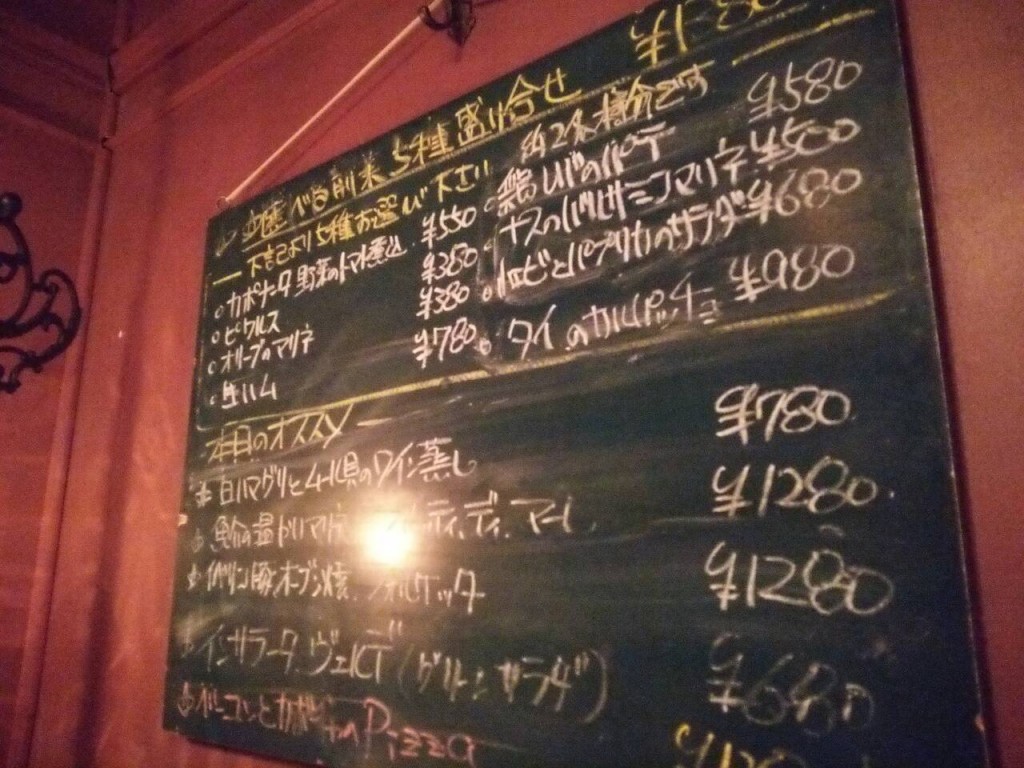 前菜 5種盛り合せ ¥1380
下記より5種お選び下さい
約2人様分です
カポナータ 野菜のトマト煮込 ¥550
ピクルス ¥380
オリーブのマリネ ¥380
生ハム ¥780
鶏レバのパテ ¥580
ナスのバルサミコマリネ ¥500
エビとパプリカのサラダ ¥680
タイのカルパッチョ ¥980
本日のオススメ
白ハマグリとムール貝のワイン蒸し ¥780
魚介の温ドリマリネ ディ.マーレ ¥1280
イベリコ豚オーブン焼. ¥1280
インサラータ.ヴェルデ (グリーンサラダ) ¥680
ベーコンと Pizza